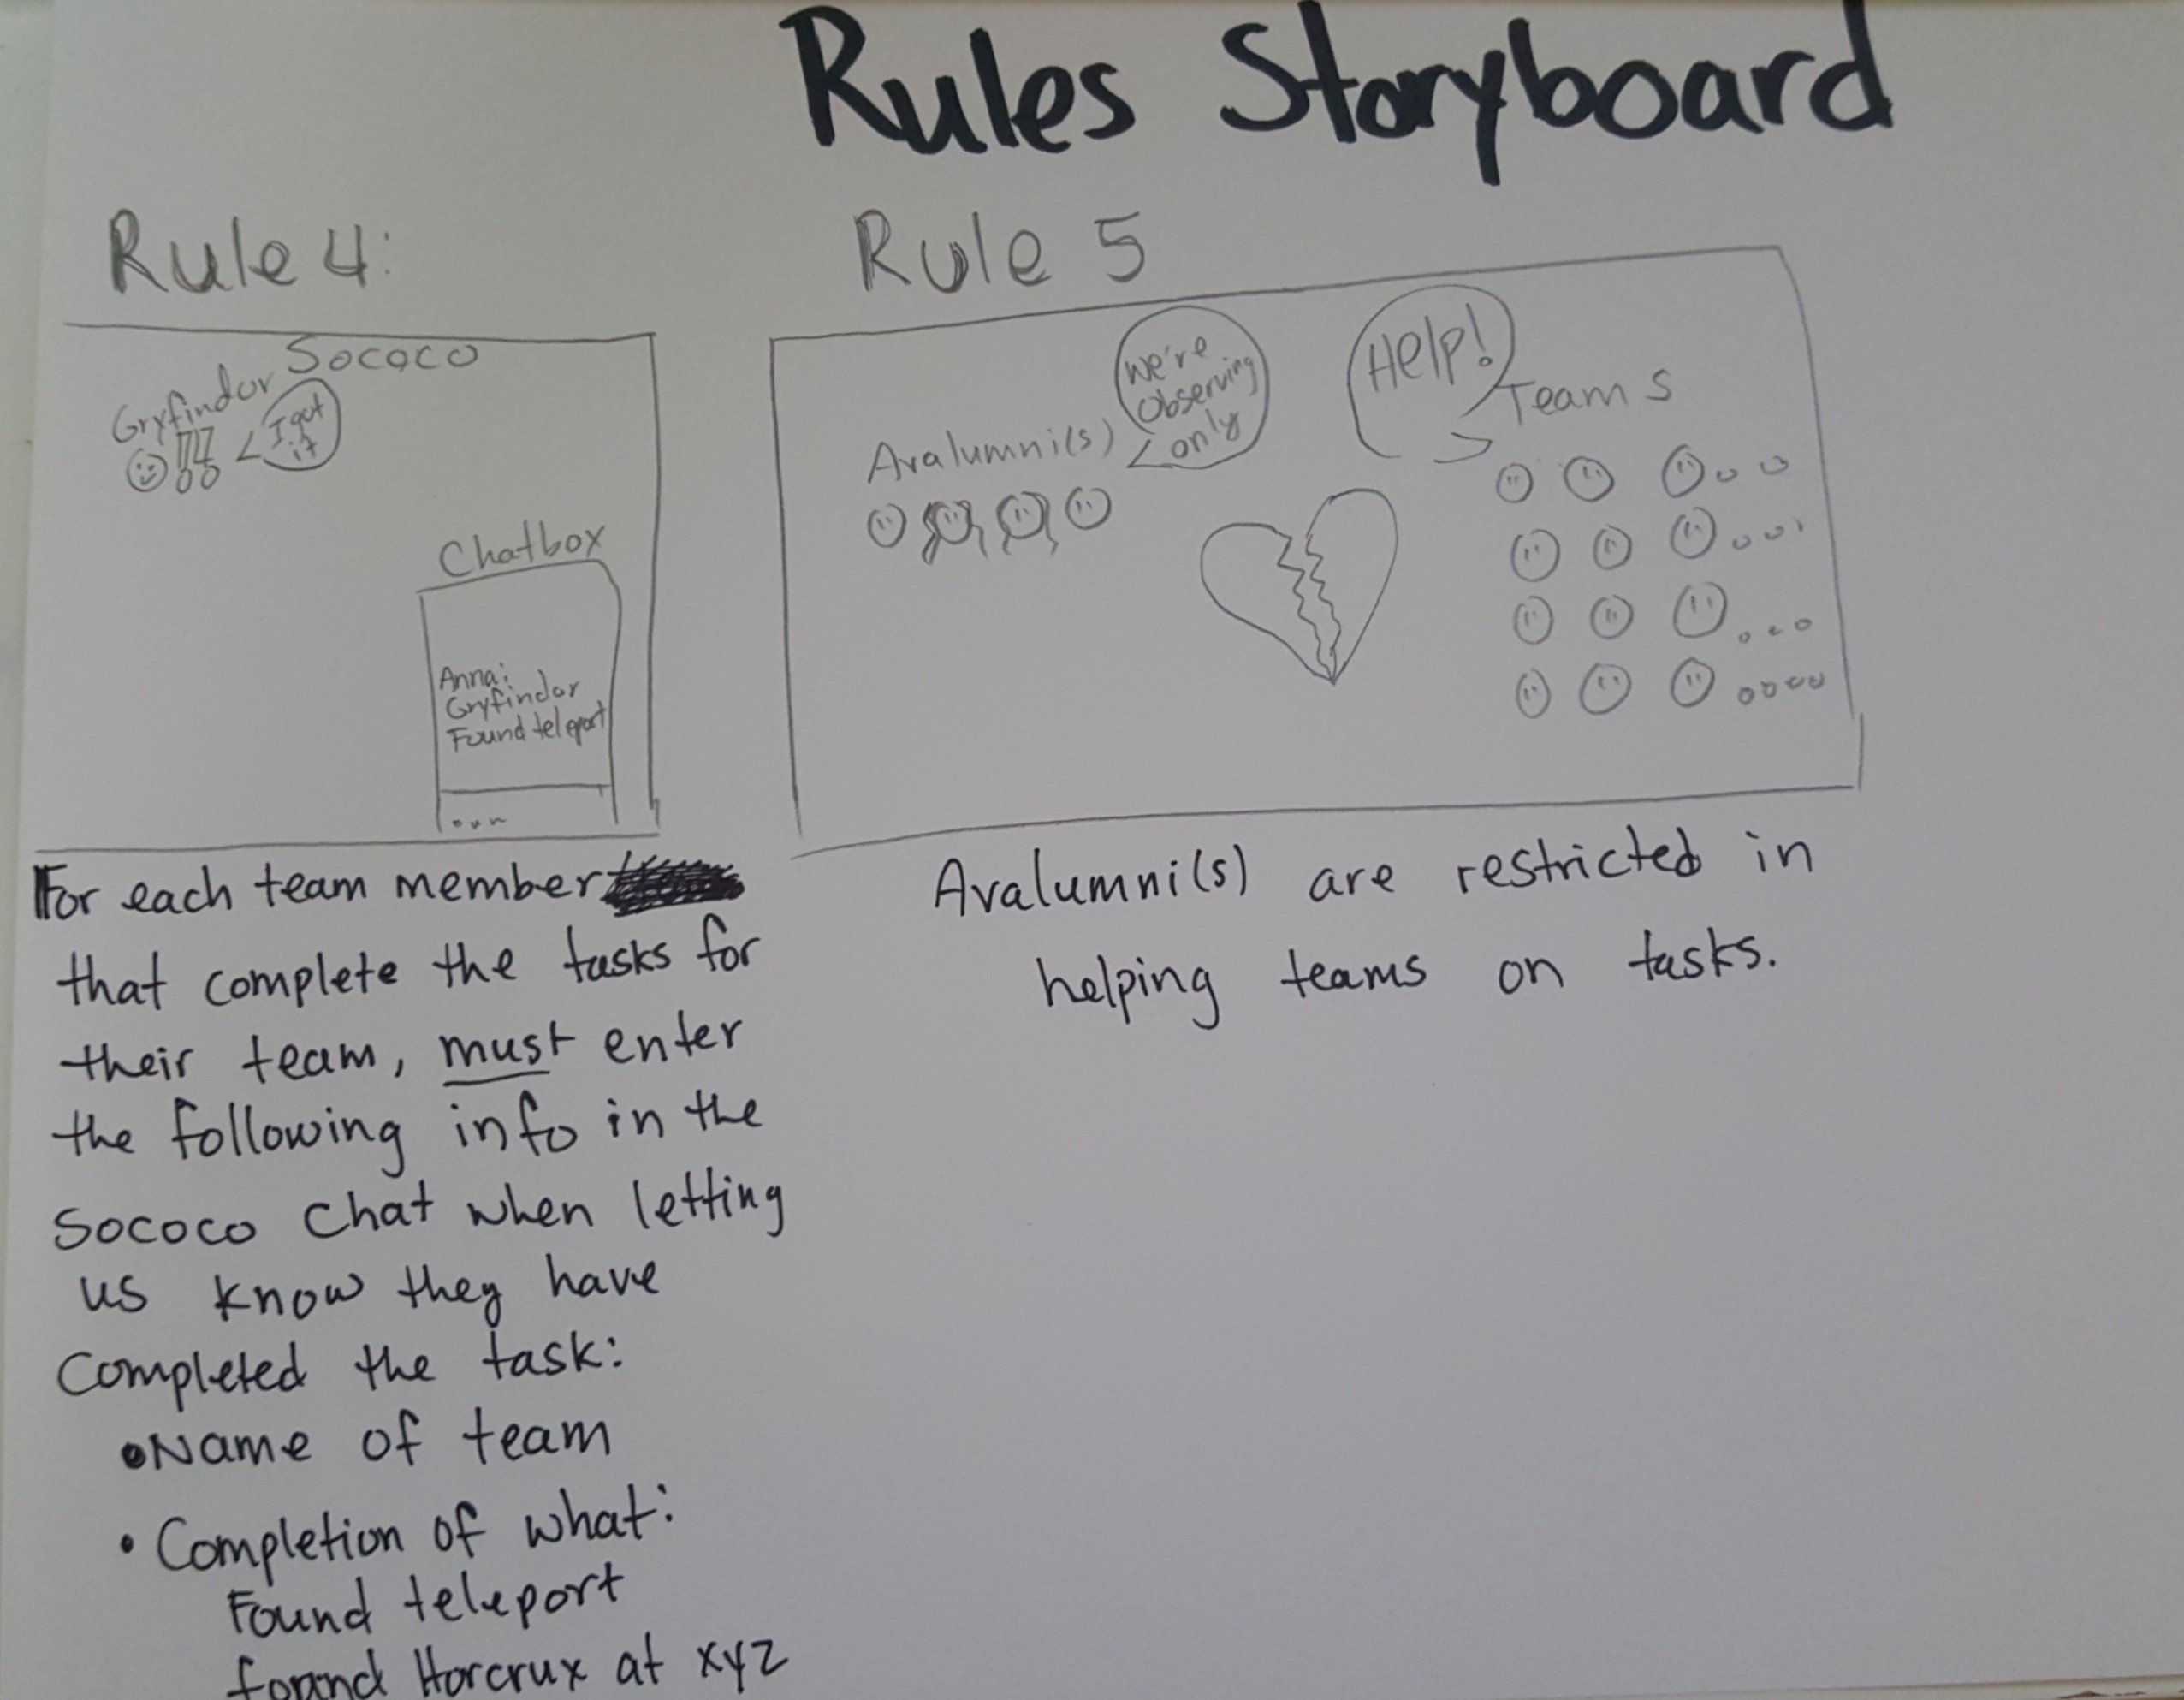 Rules Storyboard
Rule 4:
Sococo
Gryfindor
I got
it
Chatbox
Anna:
Gryfindor
Found teleport
For each team member
that complete the tasks for
their team, must enter
the following info in the
Sococo Chat when letting
us know they have
Completed the task:
•Name of team
• Completion of what:
Found teleport
found Horcrux at xyz
Rule 5
We're
Observing
only
Avalumni(s)
Help!
Teams
Avalumni(s) are restricted in
helping teams on tasks.